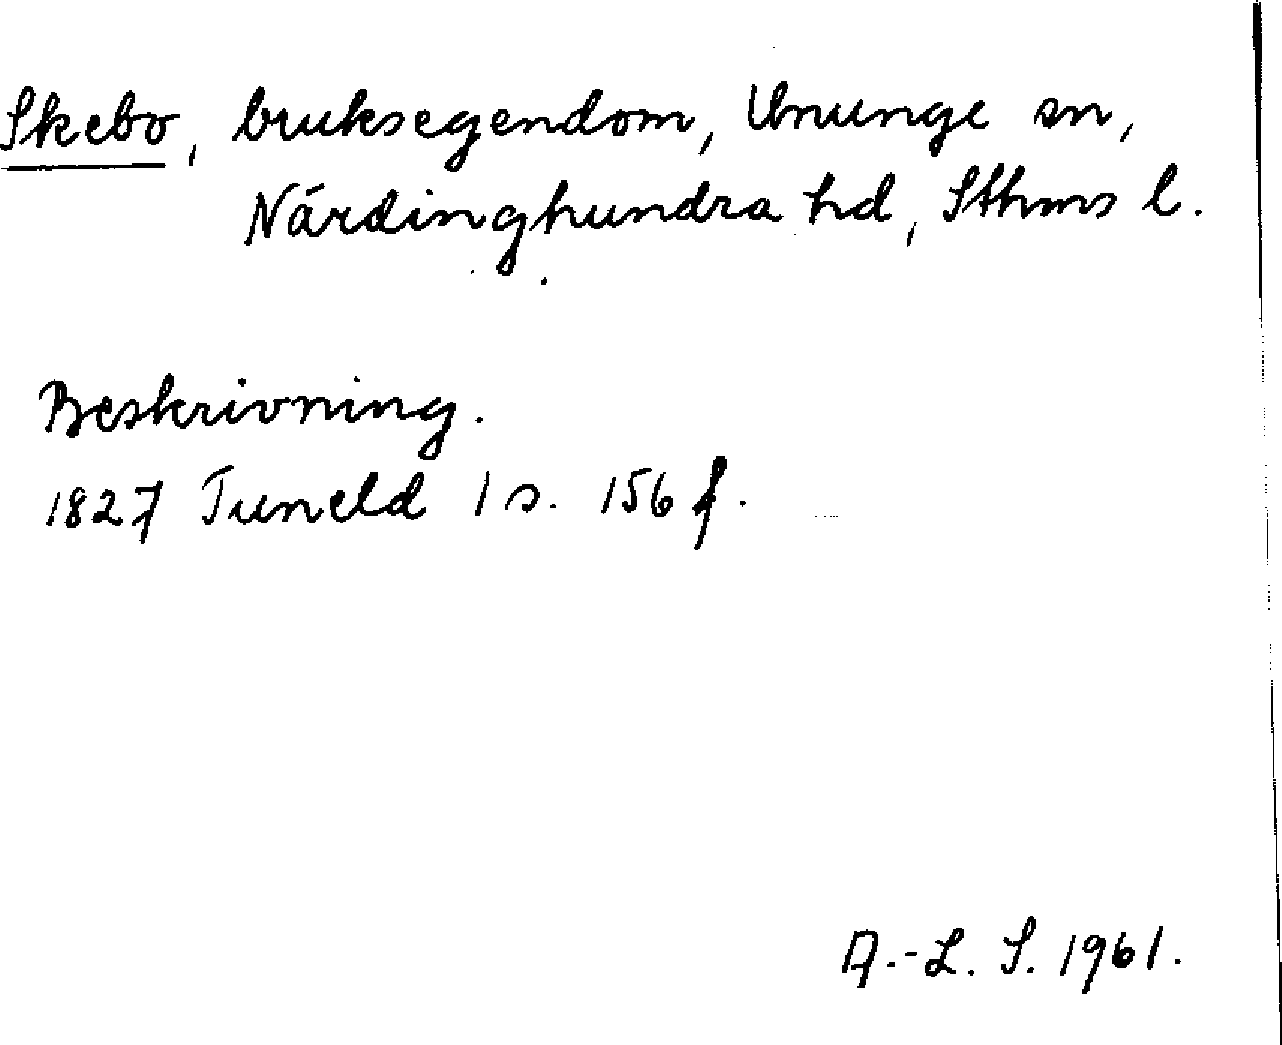 Skebo, bruksegendom, Ununge sn,
Närdinghundra hd, Sthms l.
Beskrivning.
1827 Tuneld 1 s. 156 f.
A.-L. S. 1961.